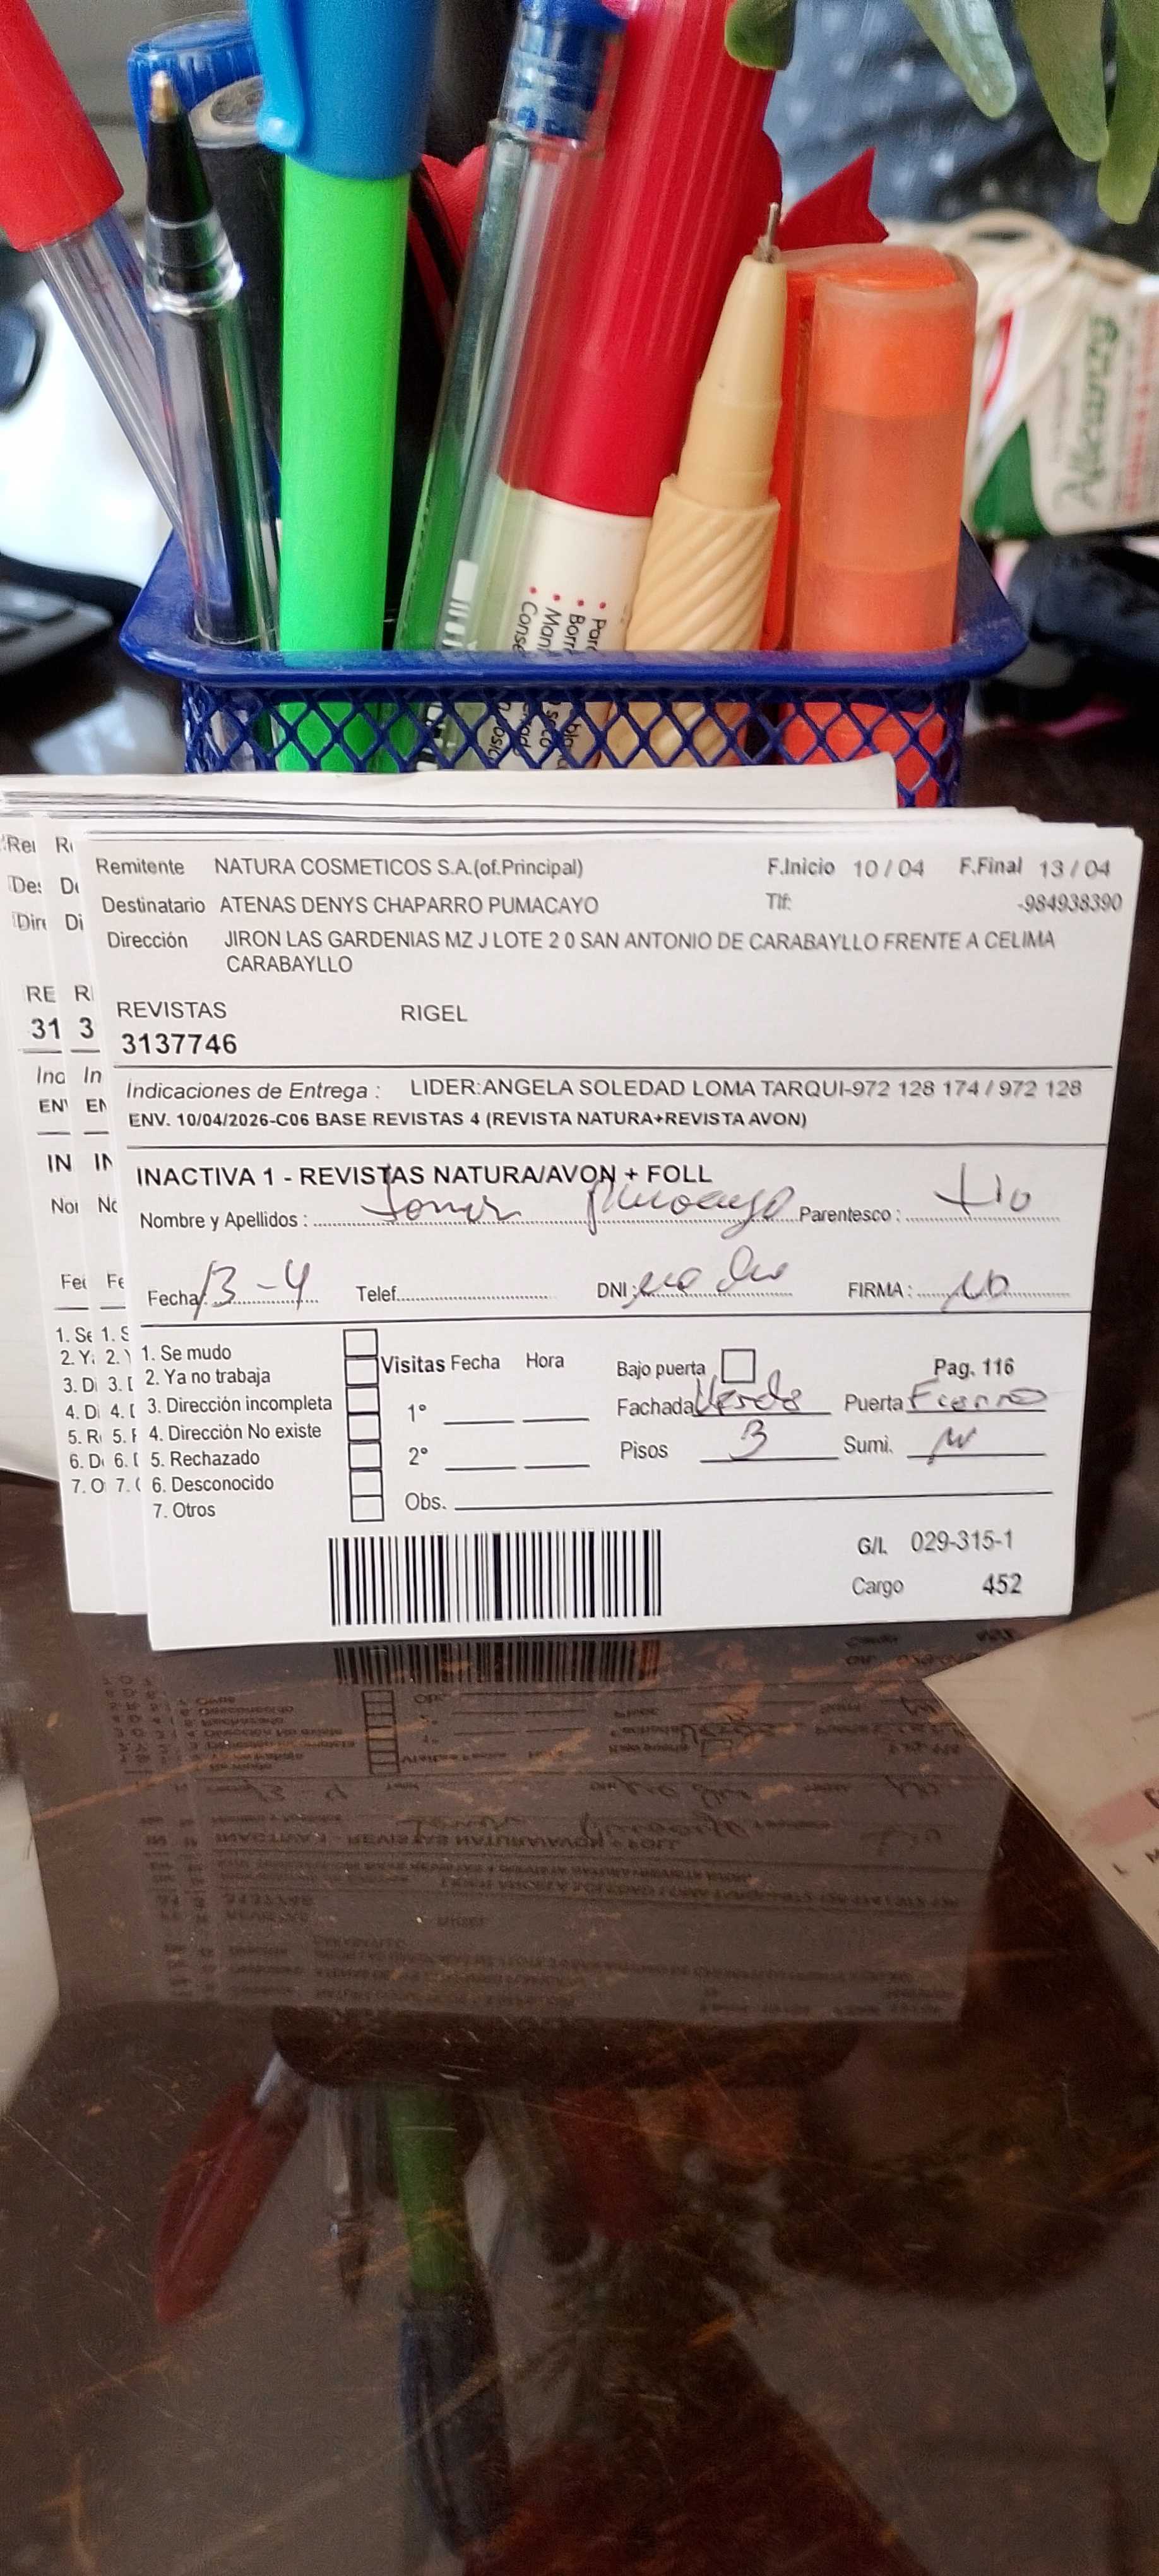 Alkanzy
Par
Borr
Man
Conse
Remitente NATURA COSMETICOS S.A.(of.Principal) F.Inicio 10 / 04 F.Final 13 / 04
Destinatario ATENAS DENYS CHAPARRO PUMACAYO Tlf: -984938390
Dirección JIRON LAS GARDENIAS MZ J LOTE 2 0 SAN ANTONIO DE CARABAYLLO FRENTE A CELIMA
CARABAYLLO
REVISTAS RIGEL
3137746
Indicaciones de Entrega : LIDER:ANGELA SOLEDAD LOMA TARQUI-972 128 174 / 972 128
ENV. 10/04/2026-C06 BASE REVISTAS 4 (REVISTA NATURA+REVISTA AVON)
INACTIVA 1 - REVISTAS NATURA/AVON + FOLL
Nombre y Apellidos : Pumacayo Parentesco : tio
Fecha: 13-4 Telef. DNI: no dio FIRMA : no
1. Se mudo
2. Ya no trabaja
3. Dirección incompleta
4. Dirección No existe
5. Rechazado
6. Desconocido
7. Otros
Visitas Fecha Hora
1°
2°
Obs.
Bajo puerta Pag. 116
Fachada Verde Puerta Fierro
Pisos 3 Sumi. N
G/I. 029-315-1
Cargo 452